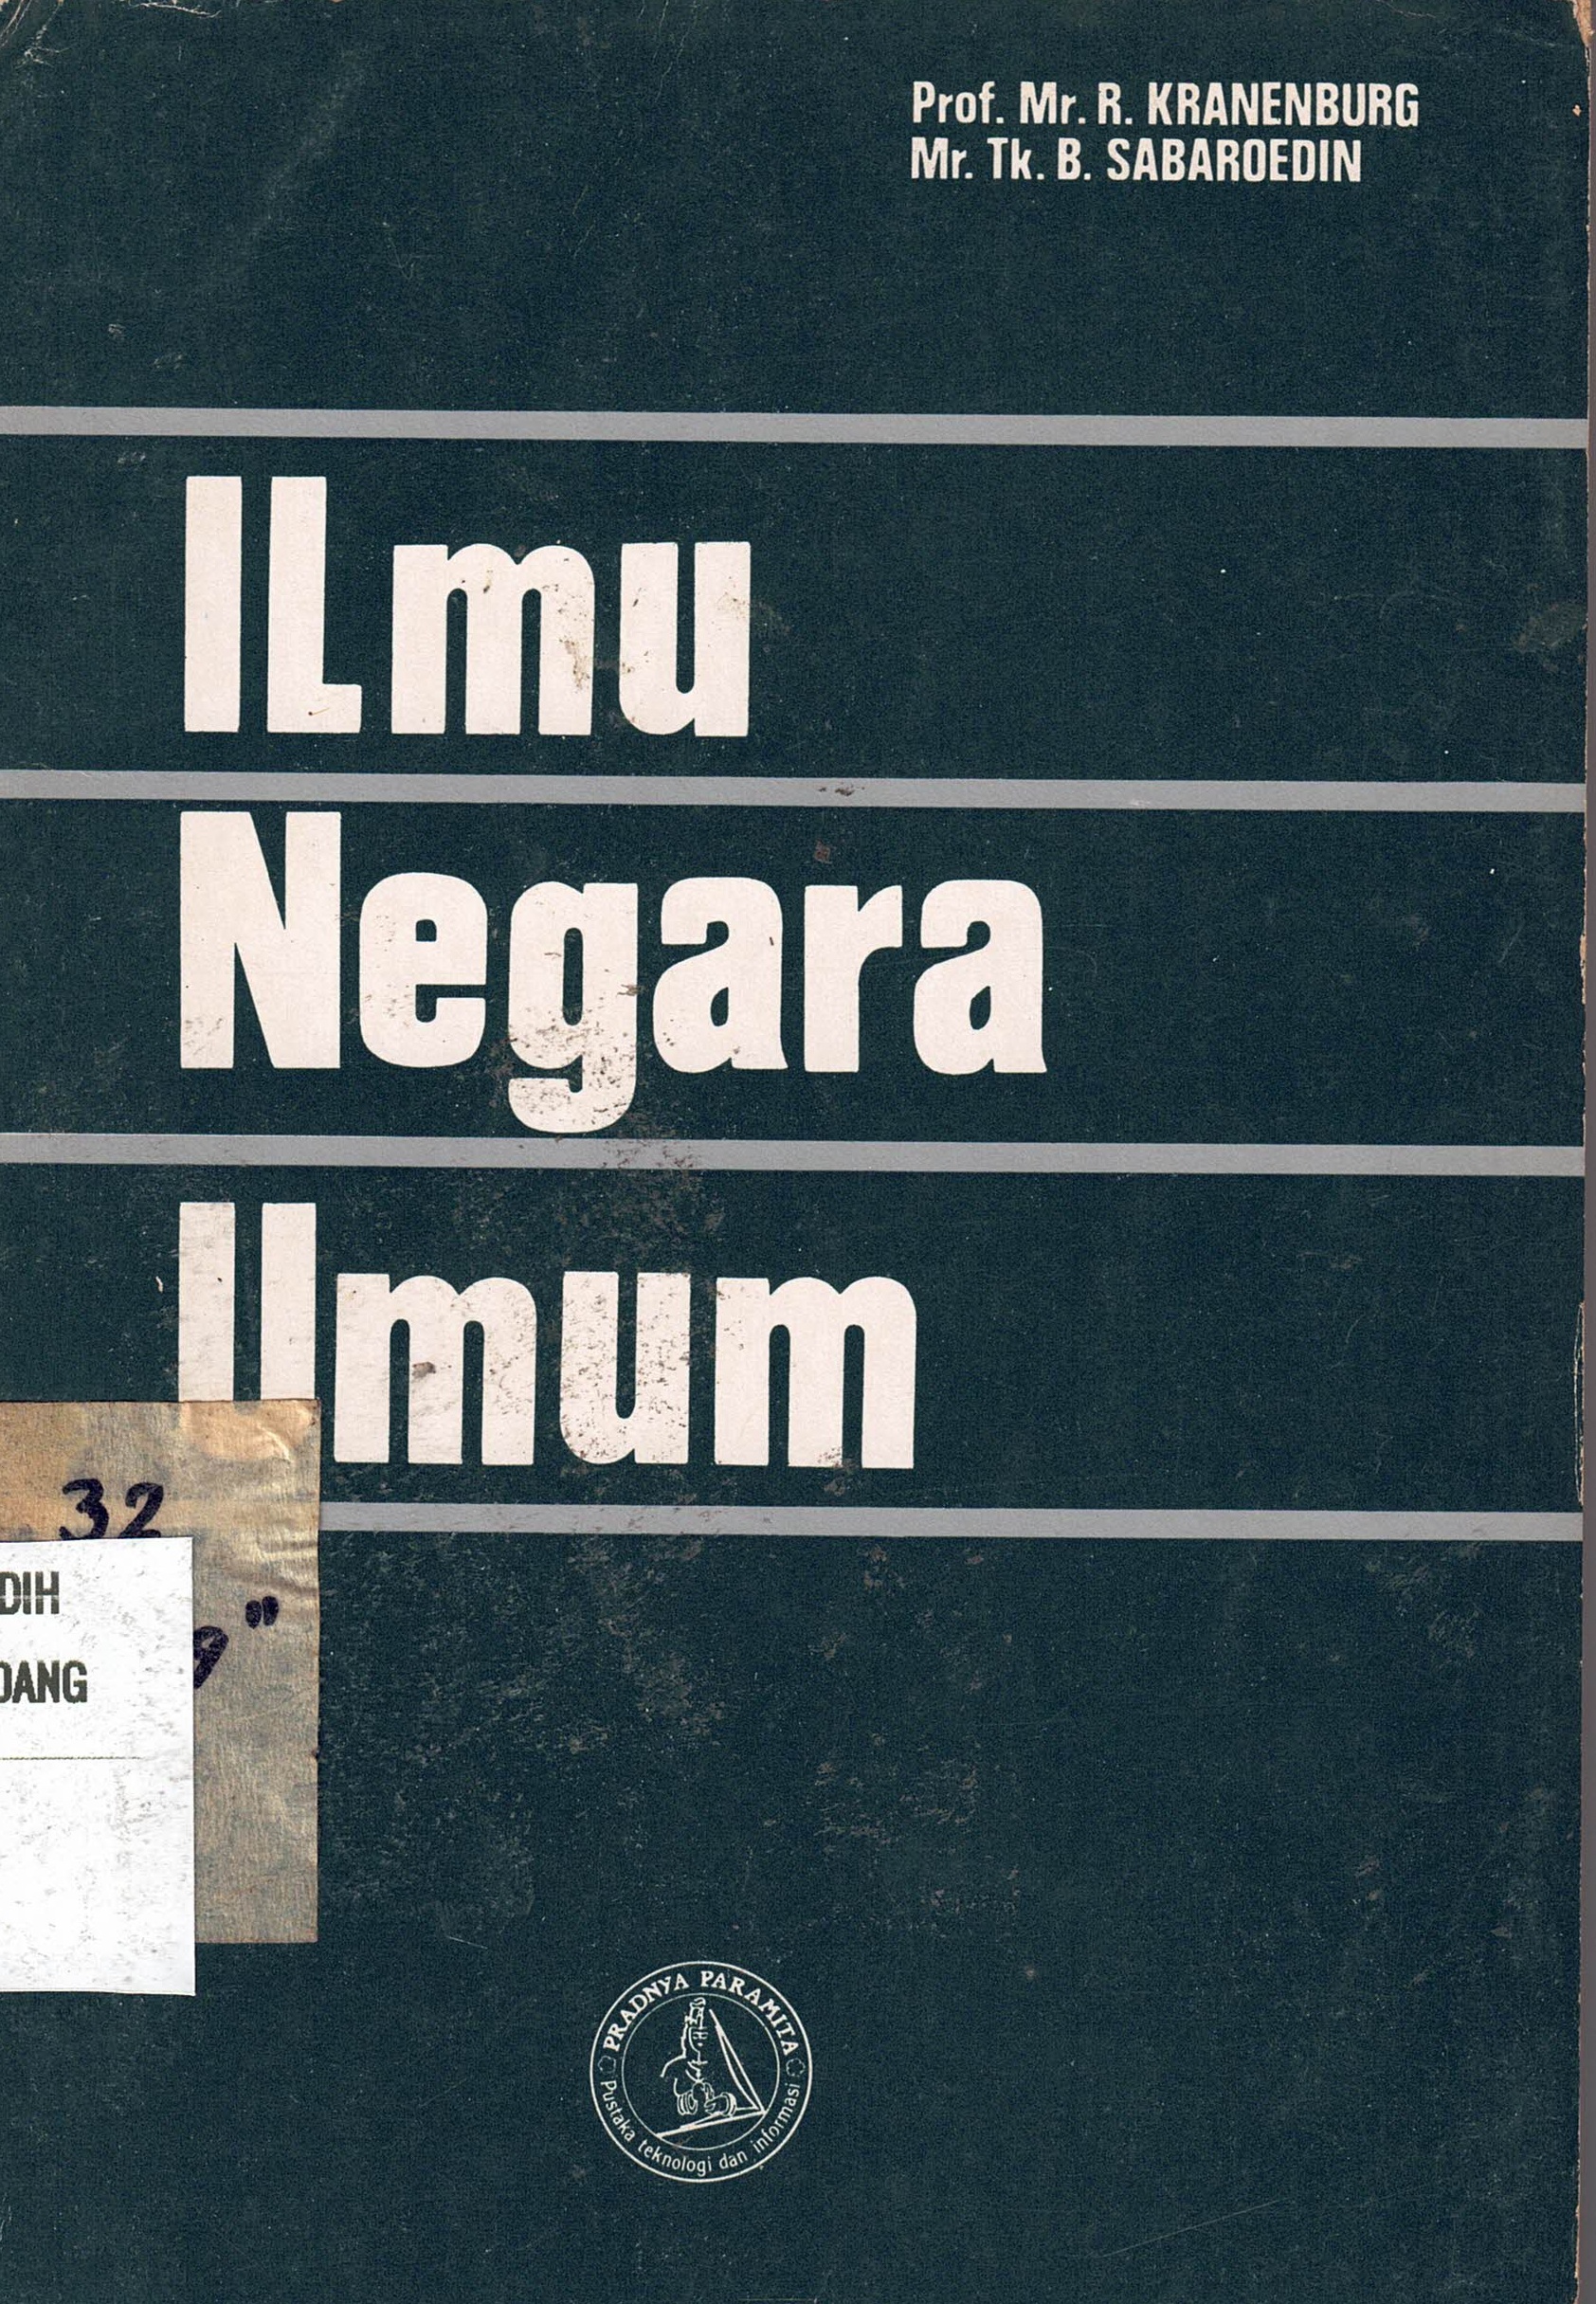 Prof. Mr. R. KRANENBURG
Mr. Tk. B. SABAROEDIN
ILmu
Negara
Umum
32
"
DIH
DANG
PRADNYA PARAMITA
Pustaka teknologi dan informasi